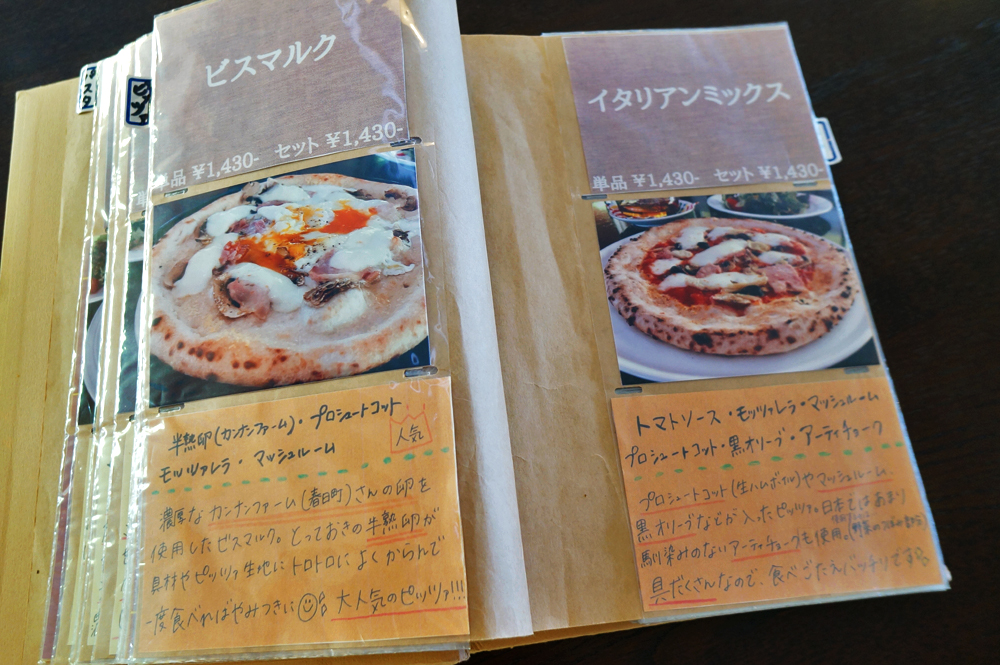 パスタ
ビスマルク
単品 ¥1,430- セット ¥1,430-
半熟卵(カンナンファーム)・プロシュートコット
モッツァレラ・マッシュルーム
人気
濃厚なカンナンファーム(春日町)さんの卵を
使用したビスマルク。とっておきの半熟卵が
具材やピッツァ生地にトロトロによくからんで
一度食べればやみつきに 大人気のピッツァ!!!
イタリアンミックス
単品 ¥1,430- セット ¥1,430-
トマトソース・モッツァレラ・マッシュルーム
プロシュートコット・黒オリーブ・アーティチョーク
プロシュートコット(生ハムボイル)やマッシュルーム
黒オリーブなどが入ったピッツァ。日本ではあまり
馴染みのないアーティチョークも使用。
具だくさんなので、食べごたえバッチリです。